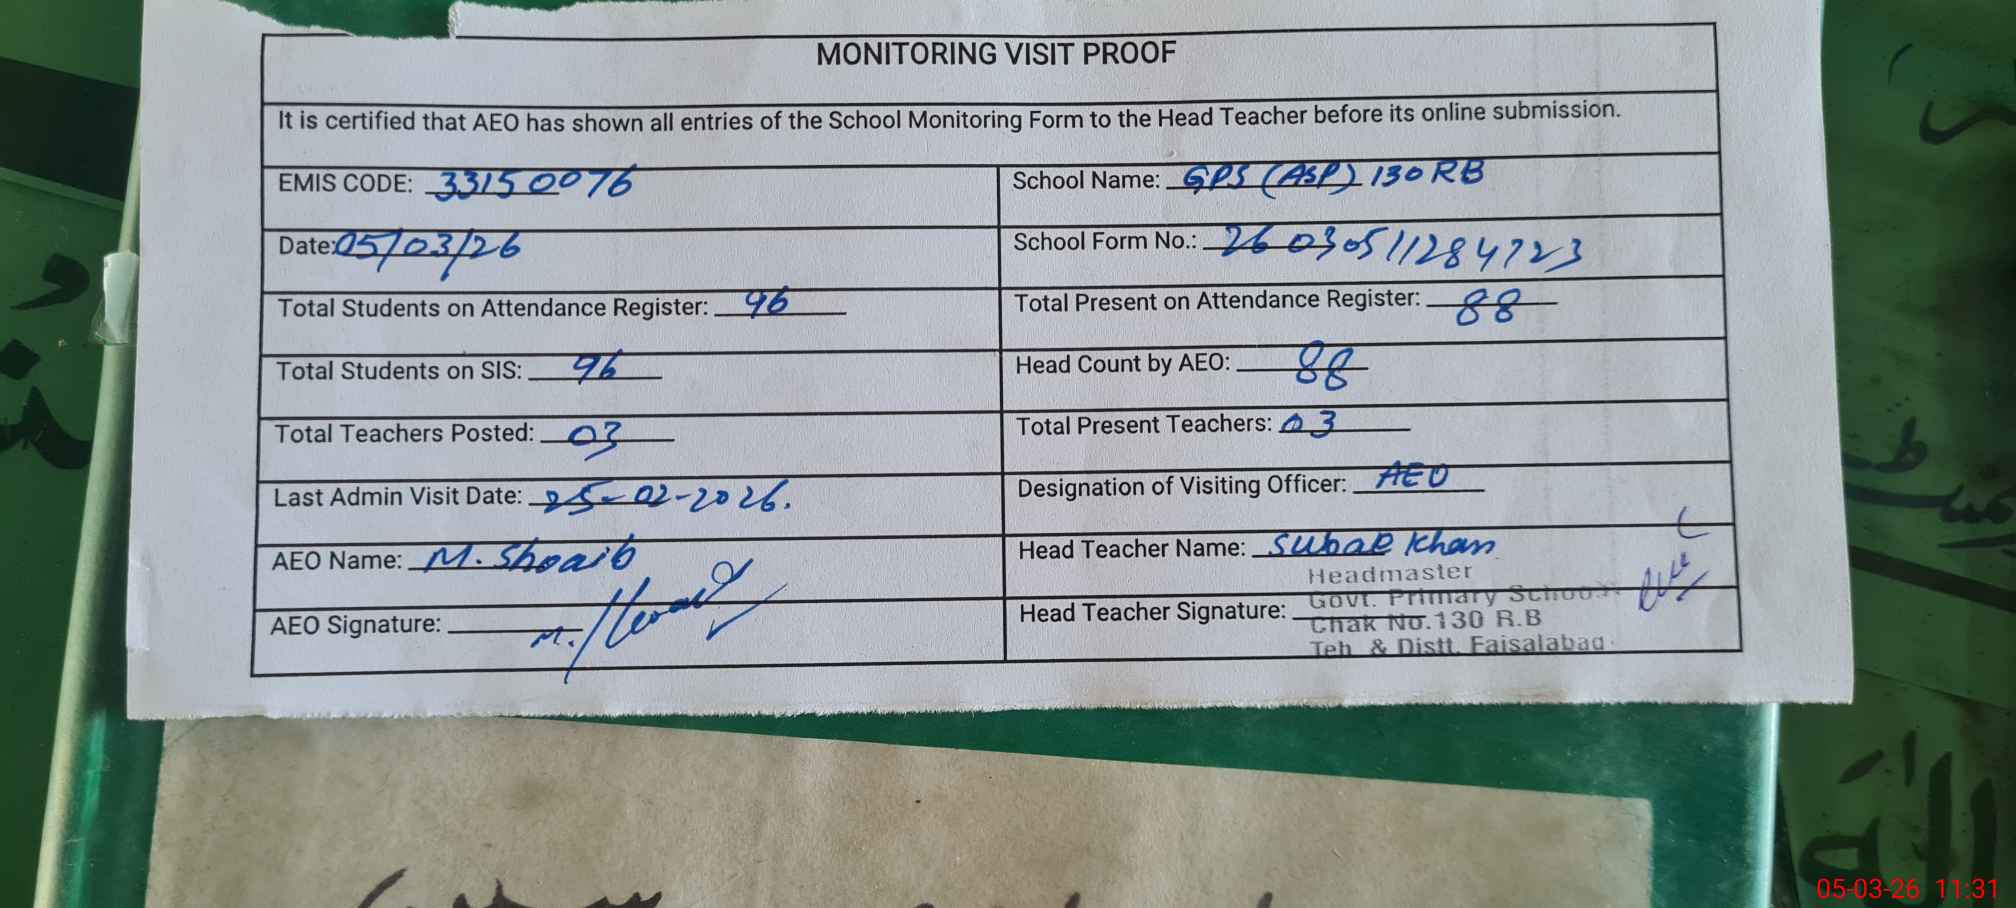 MONITORING VISIT PROOF
It is certified that AEO has shown all entries of the School Monitoring Form to the Head Teacher before its online submission.
EMIS CODE: 33150076
School Name: GPS (ASP) 130 RB
Date: 05/03/26
School Form No.: 26030511284723
Total Students on Attendance Register: 96
Total Present on Attendance Register: 88
Total Students on SIS: 96
Head Count by AEO: 88
Total Teachers Posted: 03
Total Present Teachers: 03
Last Admin Visit Date: 25-02-2026.
Designation of Visiting Officer: AEO
AEO Name: M. Shoaib
Head Teacher Name: Khan
AEO Signature:
Head Teacher Signature:
Headmaster
Govt. Primary School
Chak No.130 R.B
Teh & Distt Faisalabad
05-03-26 11:31